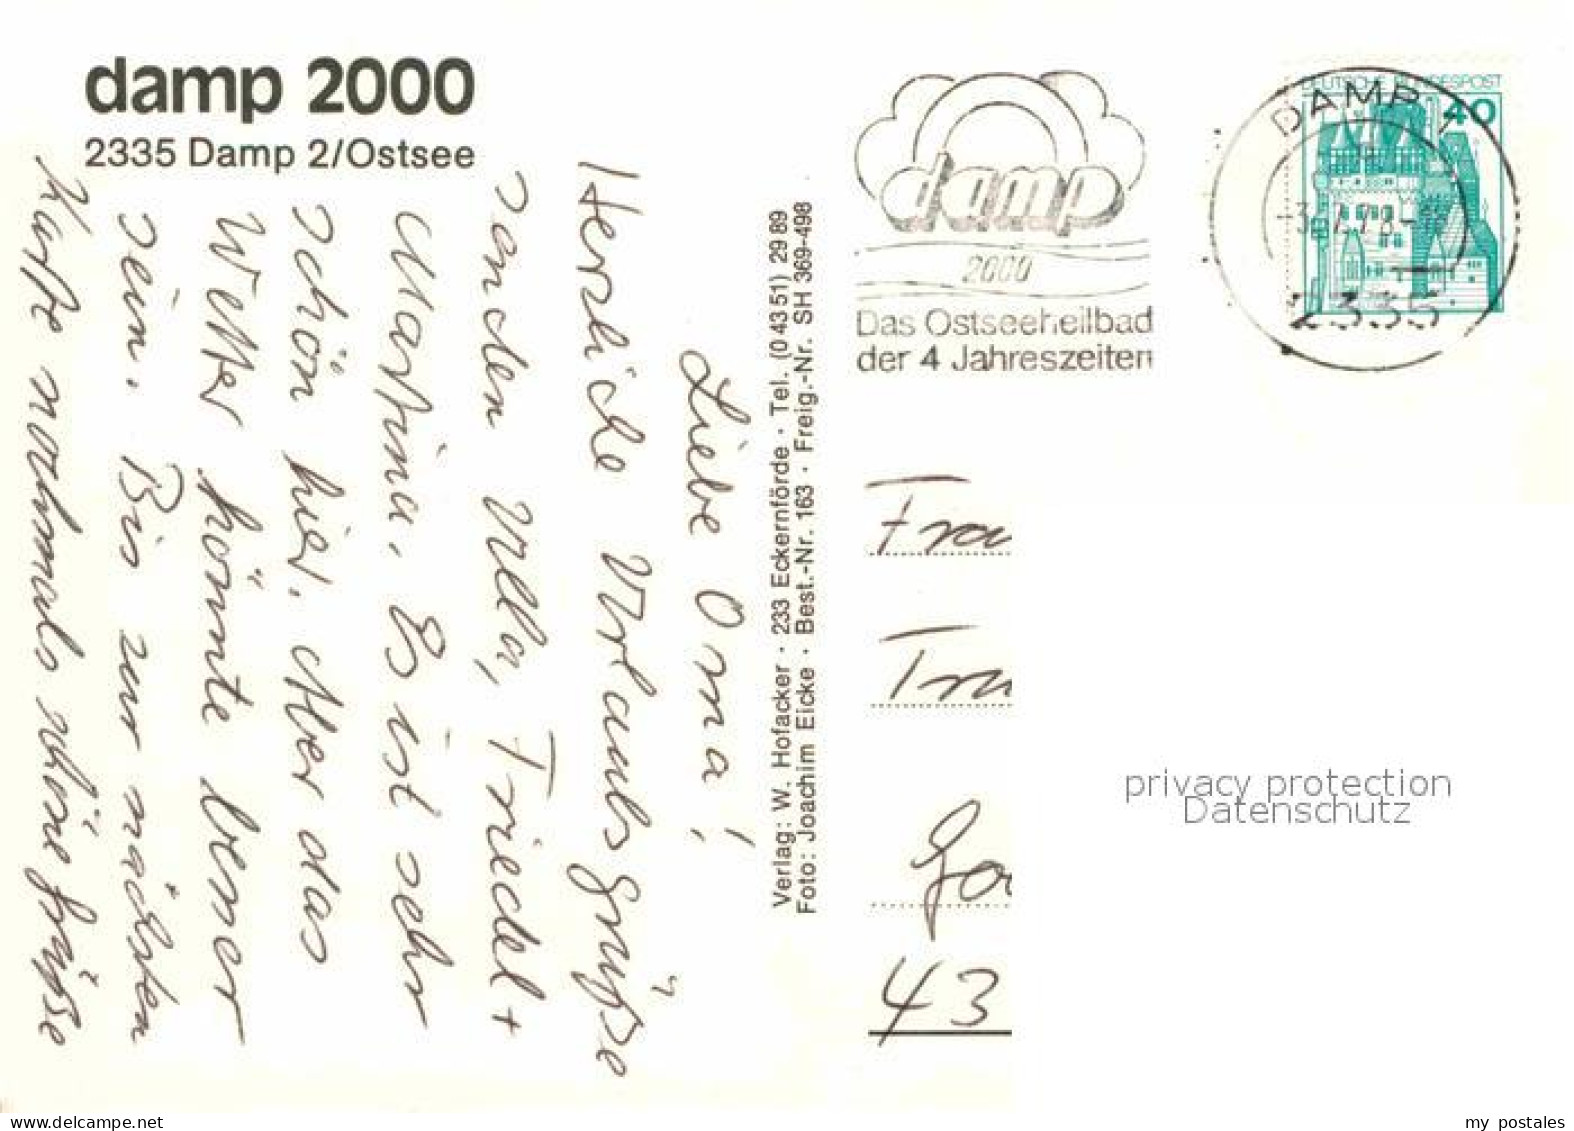 damp 2000
2335 Damp 2/Ostsee
Liebe Oma!
Herzliche Urlaubsgrüße
senden Ulla, Friedel +
Martina. Es ist sehr
schön hier. Aber das
Wetter könnte besser
sein. Bis zur nächsten
Karte nochmals schöne Grüße
Verlag: W. Hofacker · 233 Eckernförde · Tel. (0 43 51) 29 89
Foto: Joachim Eicke · Best.-Nr. 163 · Freig.-Nr. SH 369-498
damp
2000
Das Ostseeheilbad
der 4 Jahreszeiten
DEUTSCHE BUNDESPOST
40
DAMP 1
2335
Frau
43
privacy protection
Datenschutz
my postales